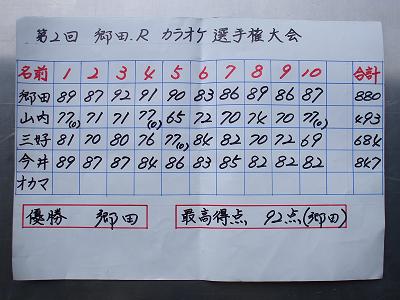 第2回 郷田.R カラオケ選手権大会
名前 1 2 3 4 5 6 7 8 9 10 合計
郷田 89 87 92 91 90 83 86 89 86 87 880
山内 77(0) 71 71 77(0) 65 72 70 74 70 77(0) 493
三好 81 70 80 76 77(0) 84 82 70 72 69 684
今井 89 87 87 84 86 83 85 82 82 82 847
オカマ
優勝 郷田 最高得点 92点(郷田)